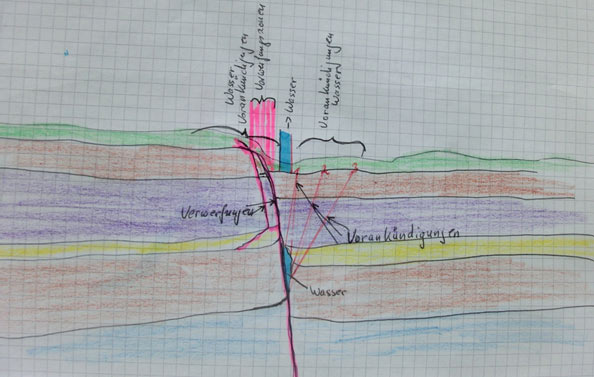 Wasser
Vorankündigungen
Verwerfungszonen
-> Wasser
Vorankündigungen
Wasser
Verwerfungen
Vorankündigungen
Wasser